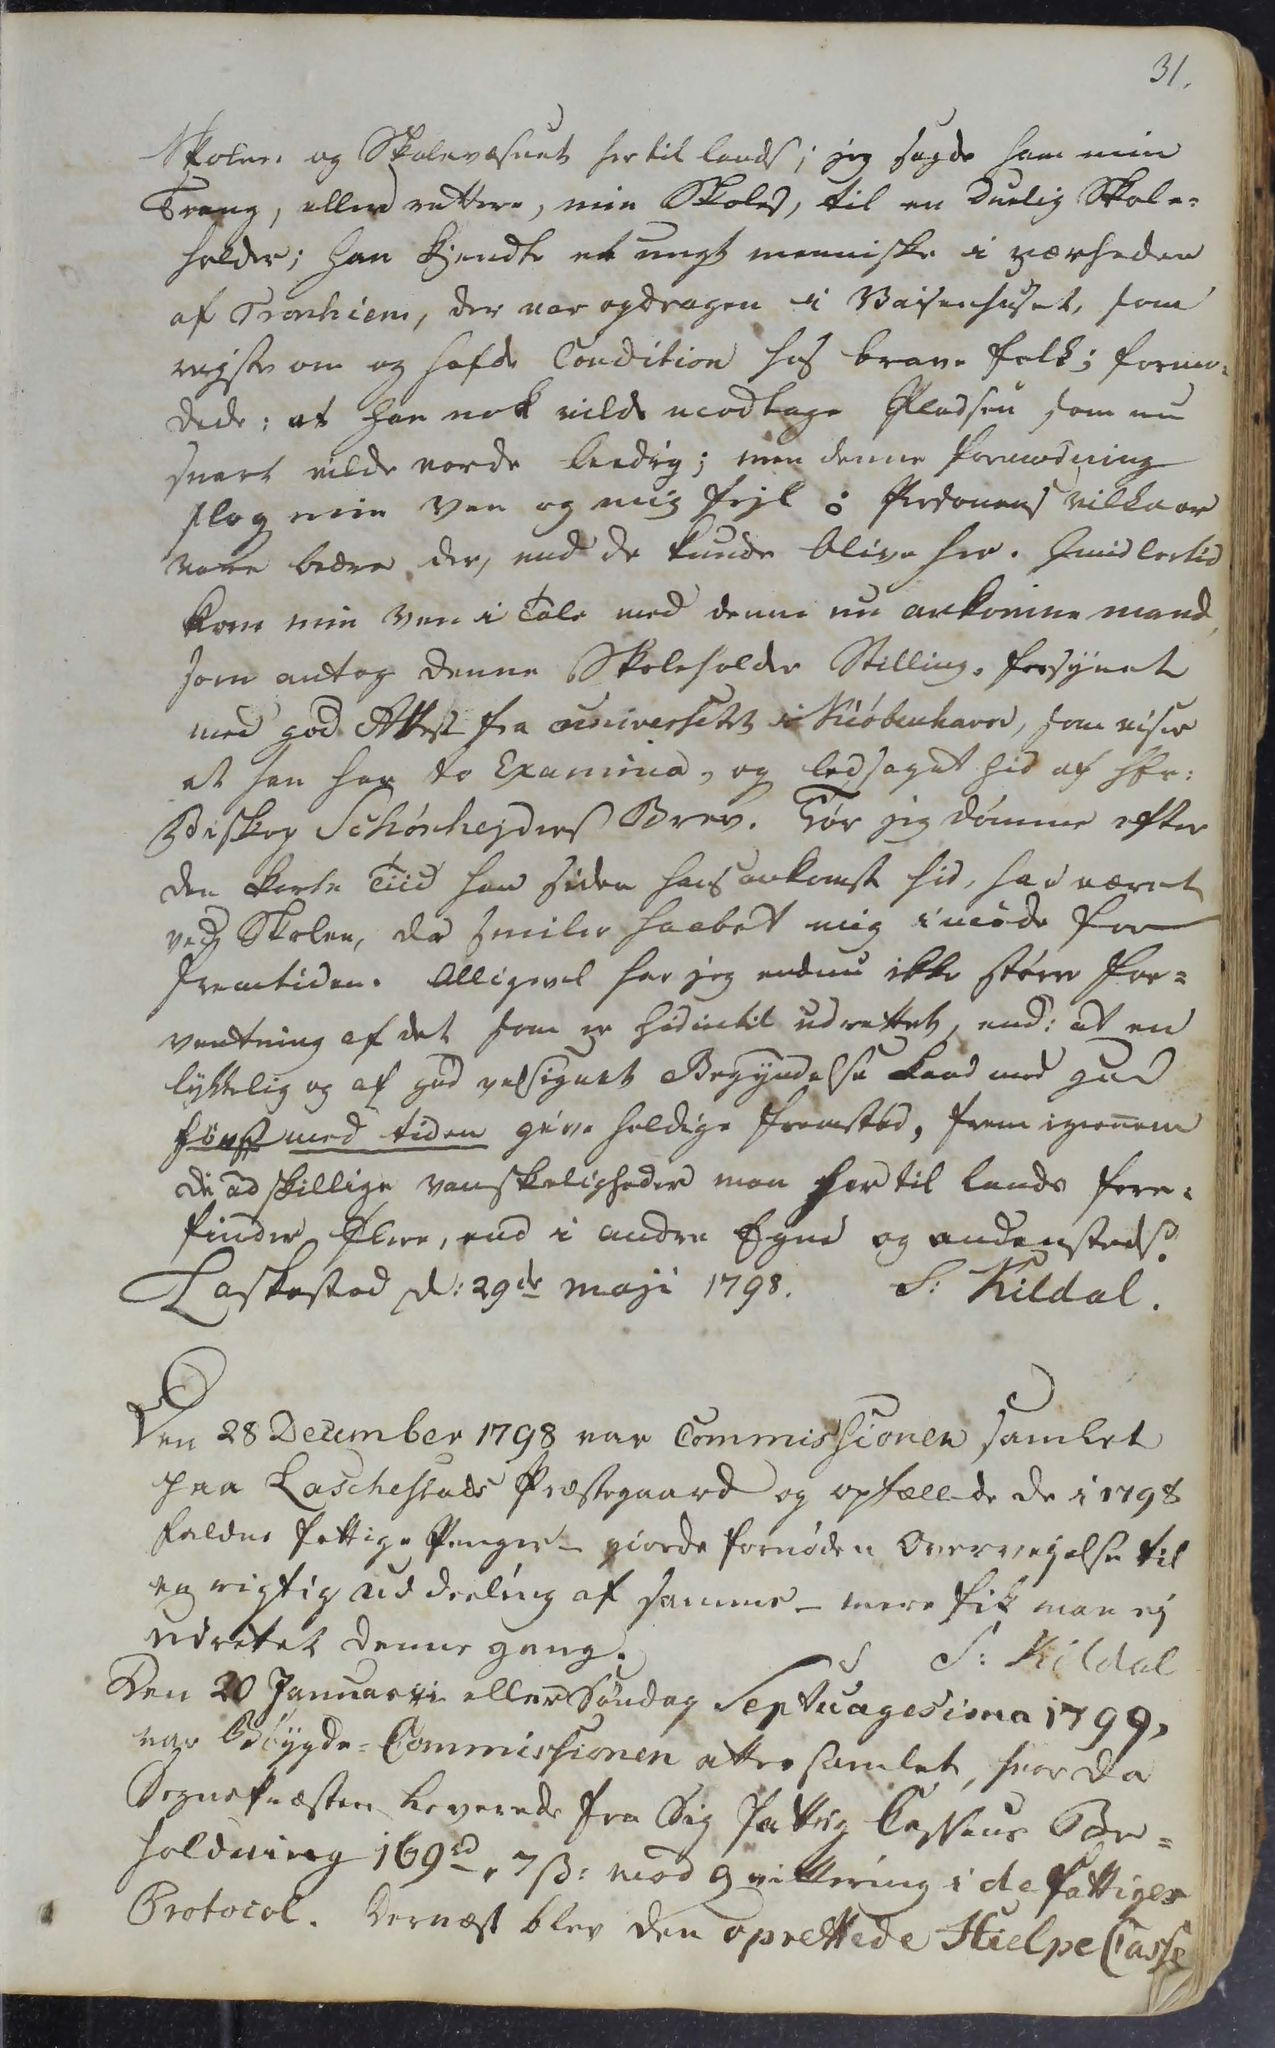 31.
Skoler og Skolevæsnet her til lands; jeg sagde ham min
Trang, eller rettere, min Skoles, til en duelig Skole-
holder; han kjendte et ungt menniske i nærheden
af Tronhiem, der var opdragen i Vaisenhuset, som
reiste om og hafde Condition hos brave folk; formo-
dede: at han nok vilde modtage Pladsen som nu
snart vilde vorde leedig; men denne formodning
slog min Ven og mig fejl: Personens vilkaar
vare bedre der, end de kunde blive her. Imidlertid
kom min Ven i Tale med denne nu ankomne mand,
som antog denne Skoleholder Stilling. forsynet
med god Attest fra universitet i Kiöbenhavn, som viser
at han har to Examina, og ledsaget hid af Hr:
Biskop Schönheyders Brev. Tör jeg dömme efter
den korte Tiid han siden hans ankomst hid, har været
ved Skolen, da smiler haabet mig i möde for
fremtiden. Alligevel har jeg endnu ikke större for-
ventning af det som er hidintil udrettet, end: at en
lykkelig og af gud velsignet Begyndelse kand med gud
först med tiden give heldige fremskred, frem igiennem
de adskillige vanskeligheder man her til lands fore-
finder flere, end i andre Egne og andensteds.
Laskestad d: 29de Maji 1798. S: Kildal.
Den 28 December 1798 var Commissionen samlet
paa Laschestads Præstegaard og optællede de i 1798
faldne fattige Penger - giorde fornöden Overvejelse til
en rigtig uddeeling af samme - mere fik man ej
udrettet denne gang. S: Kildal
Den 20 Januarii eller Söndag Septuagesima 1799,
var Bøygde-Commissionen atter samlet, hvor da
Sognepræsten leverede fra Sig fattig Cassens Be-
holdning 169rd, 7 ß: mod qvittering i de fattiges
Protocol. Dernæst blev den oprettede Hielpe Casse